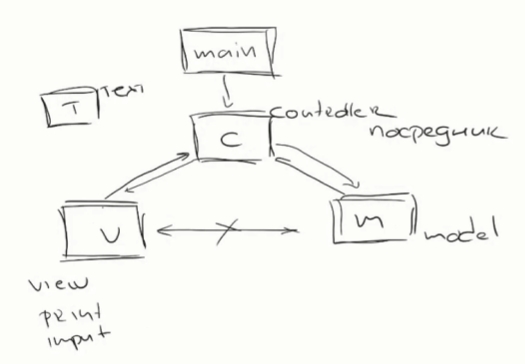 main
T
Text
C
controller
посредник
V
m
model
view
print
input